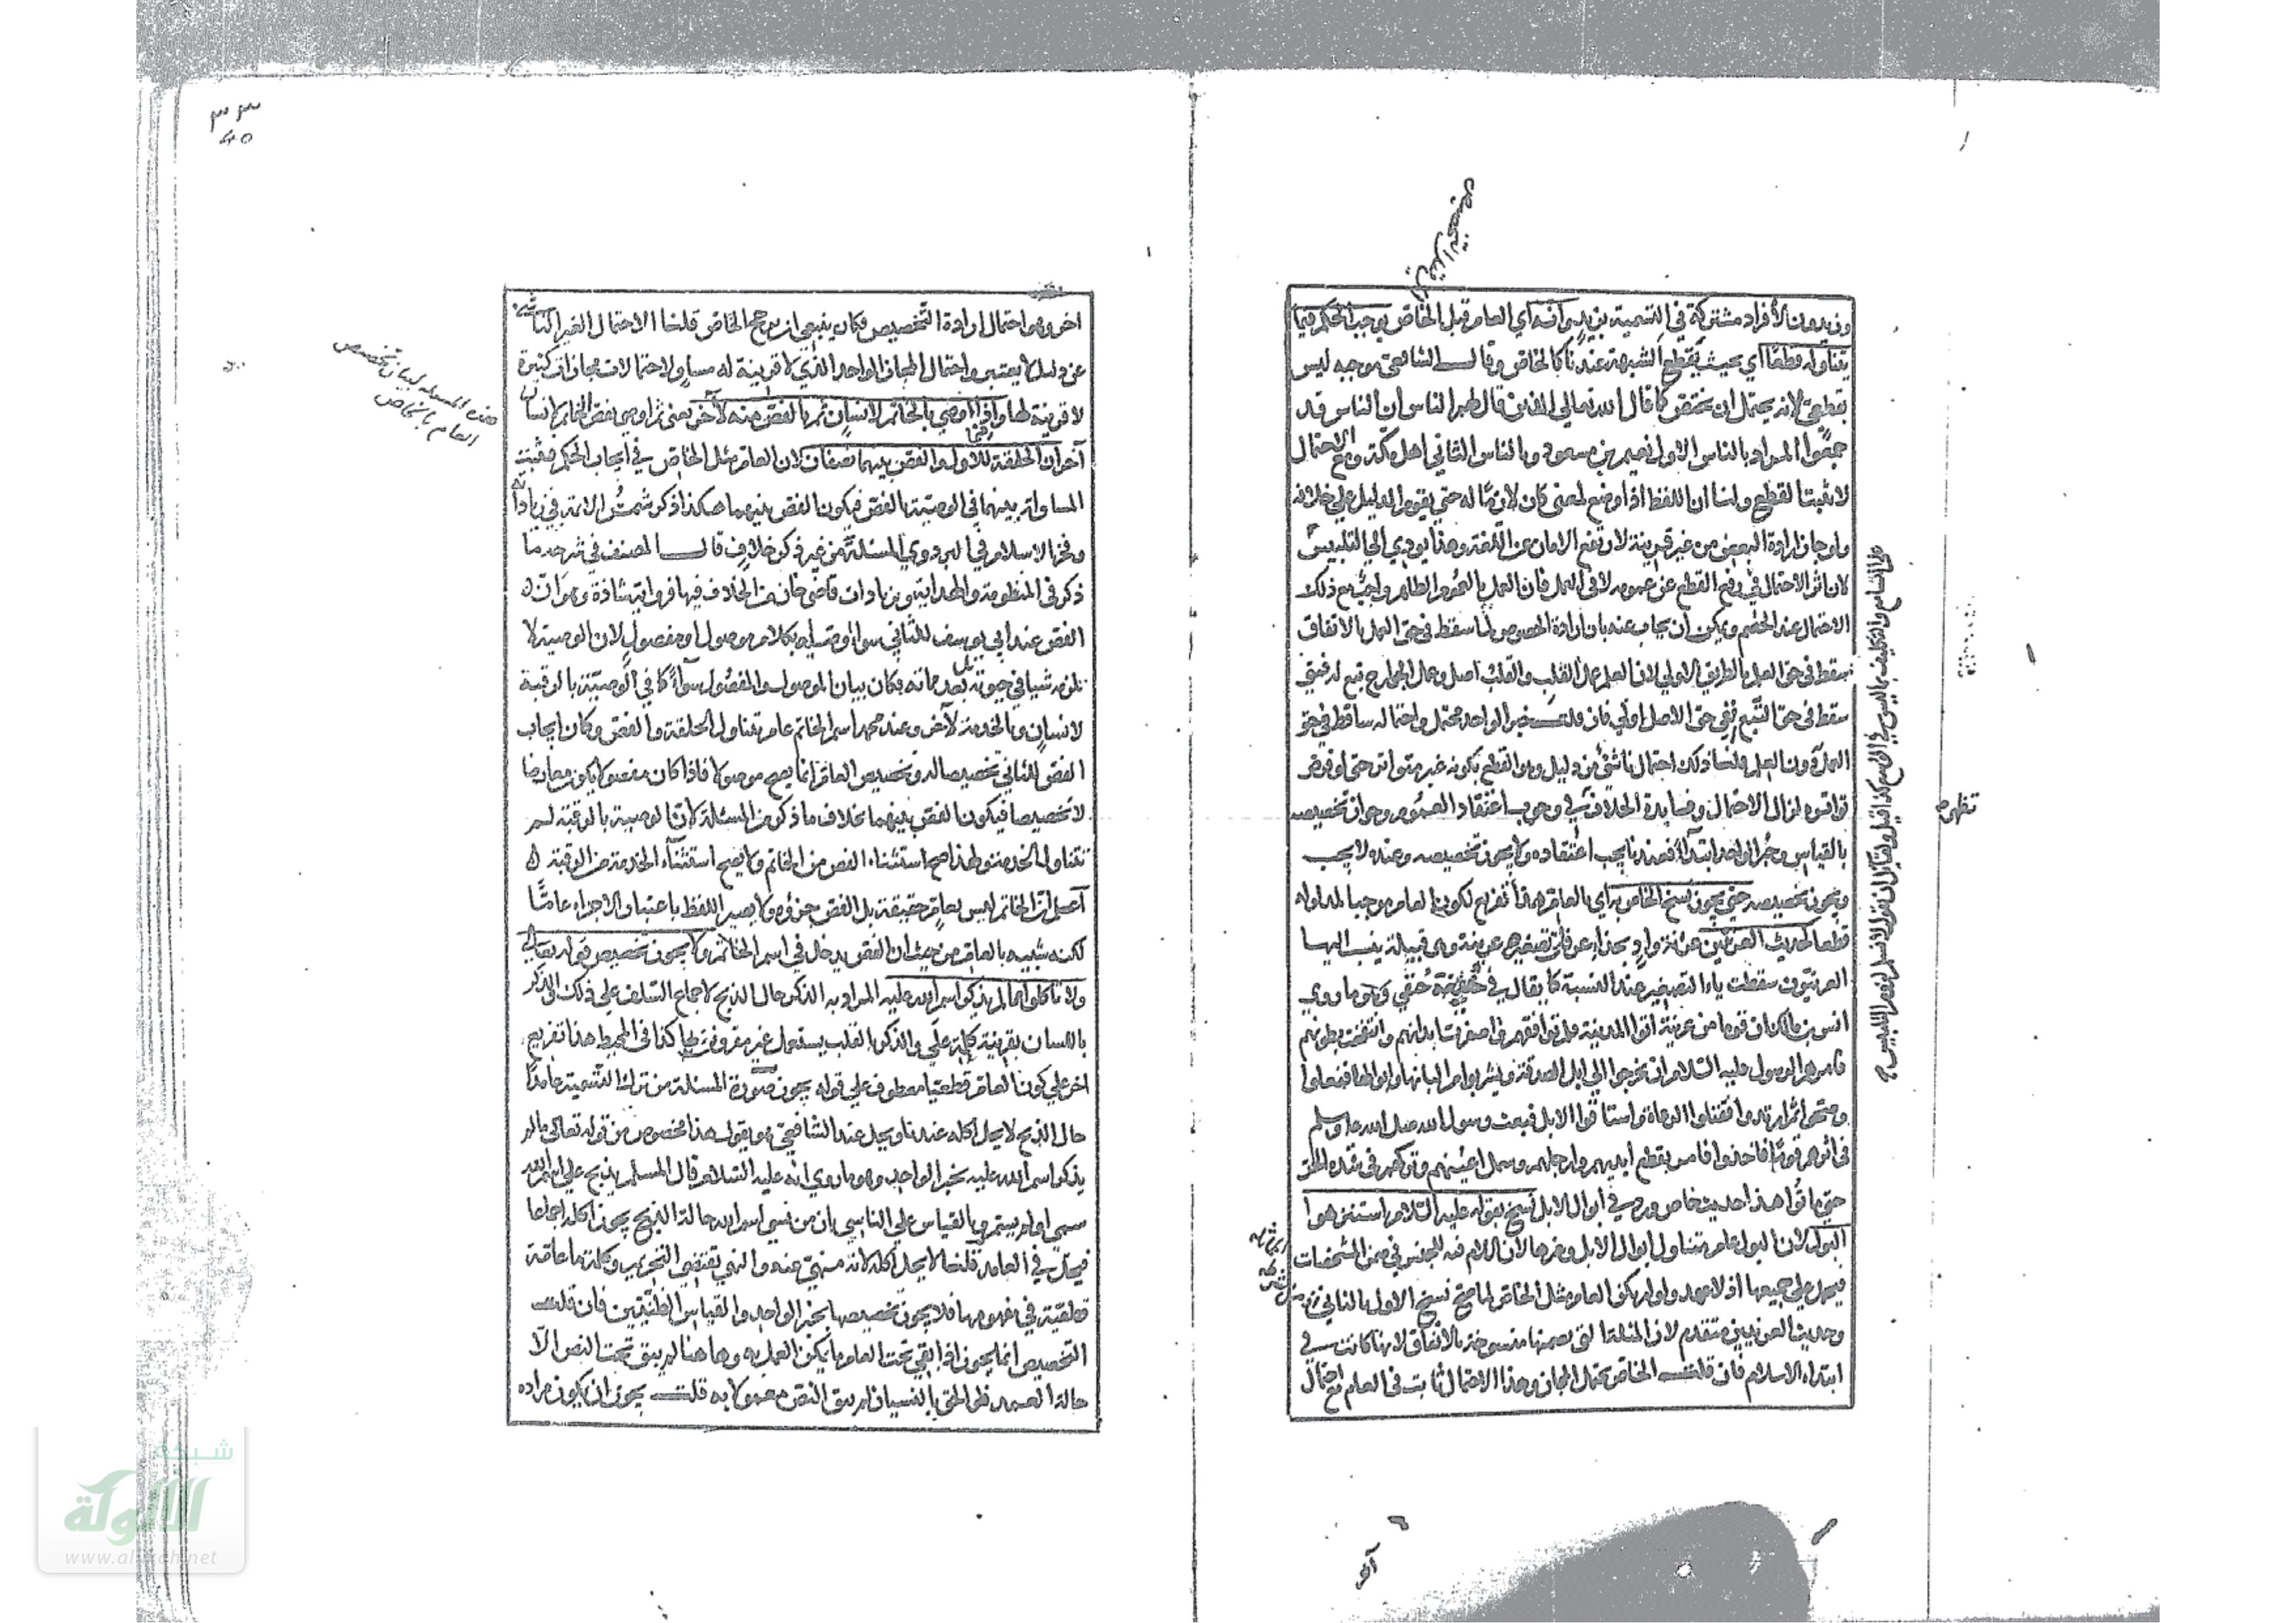 وزيد دون الأفراد مشتركة في التسمية بزيد وانه اي العام قبل الخاص يوجب الحكم فيما
يتناوله قطعا اي بحيث يقطع الشبهة عندنا كالخاص وقال الشافعي موجبه ليس
بقطعي لانه يحتمل ان يختص كما قال الله تعالى الذين قال لهم الناس ان الناس قد
جمعوا المراد بالناس الاول نعيم بن مسعود وبالناس الثاني اهل مكة ومع الاحتمال
لا يثبت القطع ولنا ان اللفظ اذا وضع لمعنى كان لازما له حتى يقوم الدليل على خلافه
ولو جاز ارادة البعض من غير قرينة لارتفع الامان عن اللغة وهذا يودي الى التلبيس
لان اثر الاحتمال في رفع القطع عن عمومه لا في العمل فان العمل بالعموم الظاهر واجب مع ذلك
الاحتمال عند الخصم ويمكن ان يجاب عنه بان ارادة الخصوص لما سقط في حق العمل بالاتفاق
سقط في حق العلم بالطريق الاولى لان العلم عمل القلب والقلب اصل وعمل الجوارح تبع له فمتى
سقط في حق التبع ففي حق الاصل اولى فان قلت خبر الواحد محتمل واحتماله ساقط في حق
العمل دون العلم قلنا ذلك احتمال ناشئ من دليل وهو القطع بكونه غير متواتر حتى لو فرض
تواتره لزال الاحتمال وفايدة الخلاف في وجوب اعتقاد العموم وجواز تخصيصه
بالقياس وخبر الواحد ابتداء فعندنا يجب اعتقاده ولا يجوز تخصيصه وعنده لا يجب
ويجوز تخصيصه حتى يجوز نسخ الخاص به اي بالعام هذا تفريع لكون العام موجبا لمدلوله
قطعا كحديث العرنيين عرنة واد بحذاء عرفات تصغيرها عرينة وهي قبيلة ينسب اليها
العرنيون سقطت ياء التصغير عند النسبة كما يقال في حنيفة حنفي وهو ما روي
انس بن مالك ان قوما من عرينة اتوا المدينة فلم توافقهم فاصفرت ابدانهم وانتفخت بطونهم
فامرهم الرسول عليه السلام ان يخرجوا الى ابل الصدقة ويشربوا من البانها وابوالها ففعلوا
وصحوا ثم ارتدوا فقتلوا الرعاة واستاقوا الابل فبعث رسول الله صلى الله عليه وسلم
في اثرهم قوما فاخذوا فامر بقطع ايديهم وارجلهم وسمل اعينهم وتركهم في شدة الحر
حتى ماتوا هذا حديث خاص ورد في ابوال الابل نسخ بقوله عليه السلام استنزهوا
البول لان البول عام يتناول ابوال الابل وغيرها لان اللام فيه للجنس في ضمن المشخصات
فيحمل على جميعها اذ لا عهد ولو لم يكن العام مثل الخاص لما صح نسخ الاول بالثاني
وحديث العرنيين متقدم لان المثلة التي تضمنها منسوخة بالاتفاق لانها كانت في
ابتداء الاسلام فان قلت الخاص يحتمل المجاز وهذا الاحتمال ثابت في العام مع احتمال
تظهر
اخر وهو احتمال ارادة التخصيص فكان ينبغي ان يرجح الخاص قلنا الاحتمال الغير الناشئ
عن دليل لا يعتبر واحتمال المجاز الواحد الذي لا قرينة له مساو لاحتمالات مجازات كثيرة
لا قرينة لها واذا اوصى بالخاتم لانسان ثم بالفص منه لآخر يعني ثم اوصى بفص الخاتم لانسان
آخر ان الحلقة للاول والفص بينهما نصفان لان العام مثل الخاص في ايجاب الحكم فثبتت
المساواة بينهما في الوصية بالفص فيكون الفص بينهما هكذا ذكر شمس الائمة في زياداته
وفخر الاسلام في البزدوي المسئلة من غير ذكر خلاف قال المصنف في شرحه ما
ذكر في المنظومة والهداية وزيادات قاضي خان من الخلاف فيها فرواية شاذة وهو ان
الفص عند ابي يوسف للثاني سواء اوصى له بكلام موصول او مفصول لان الوصية لا
تلزمه شيا في حيوته بل بعد مماته فكان بيان الموصول والمفصول سواء كما في الوصية بالرقبة
لانسان وبالخدمة لآخر وعند محمد اسم الخاتم عام يتناول الحلقة والفص وكان ايجاب
الفص للثاني تخصيصا له وتخصيص العام انما يصح موصولا فاذا كان مفصولا يكون معارضا
لا تخصيصا فيكون الفص بينهما بخلاف ما ذكر من المسئلة لان الوصية بالرقبة لم
تتناول الخدمة ولهذا صح استثناء الفص من الخاتم ولا يصح استثناء الخدمة من الرقبة
اعلم ان الخاتم ليس بعام حقيقة بل الفص جزؤه ولا يصير اللفظ باعتبار الاجزاء عاما
لكنه شبيه بالعام من حيث ان الفص يدخل في اسم الخاتم ولا يجوز تخصيص قوله تعالى
ولا تاكلوا مما لم يذكر اسم الله عليه المراد به الذكر حال الذبح لاجماع السلف على ذلك الذكر
باللسان بقرينة كلمة على والذكر بالقلب يستعمل غير مقرون بها كذا في المحيط هذا تفريع
اخر على كون العام قطعيا معطوف على قوله يجوز صورة المسئلة من ترك التسمية عامدا
حال الذبح لا يحل اكله عندنا ويحل عند الشافعي هو يقول هذا مخصوص من قوله تعالى مما لم
يذكر اسم الله عليه بخبر الواحد وهو ما روي انه عليه السلام قال المسلم يذبح على اسم الله
سمى او لم يسم وبالقياس على الناسي بان من نسي اسم الله حالة الذبح يجوز اكله اجماعا
فيحل في العامد قلنا لا يحل اكله لانه منهي عنه والنهي يقتضي التحريم وكلمة ما عامة
قطعية في مفهومها فلا يجوز تخصيصها بخبر الواحد والقياس الظنيين فان قلت
التخصيص انما يجوز اذا بقي تحت العام ما يمكن العمل به وها هنا لم يبق تحت النص الا
حالة العمد فلو الحق بالنسيان لم يبق النص معمولا به قلت يجوز ان يكون مراده
هذه المسئلة لبيان تخصيص
العام بالخاص
شبكة
الألوكة
www.alukah.net